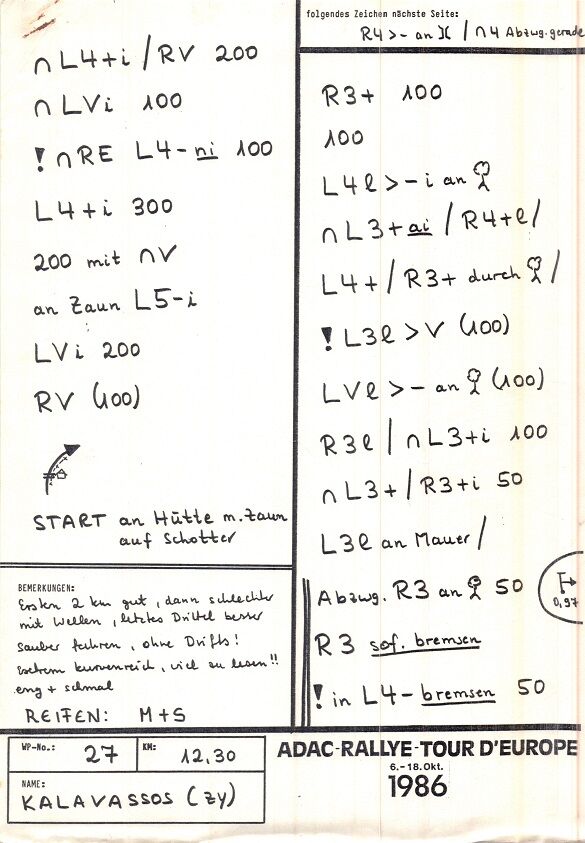 folgendes Zeichen nächste Seite:
R4 >- an )( / ∩4 Abzwg. gerade
∩ L4+i / RV 200
∩ LVi 100
! ∩RE L4-ni 100
L4+i 300
200 mit ∩V
an Zaun L5-i
LVi 200
RV (100)
START an Hütte m. Zaun
auf Schotter
BEMERKUNGEN:
Ersten 2 km gut, dann schlechter
mit Wellen, letztes Drittel besser
sauber fahren, ohne Drifts!
Extrem kurvenreich, viel zu lesen!!
eng + schmal
REIFEN: M+S
R3+ 100
100
L4l >-i an
∩ L3+ai / R4+l /
L4+ / R3+ durch /
! L3l > V (100)
LVl >- an (100)
R3l / ∩ L3+i 100
∩ L3+ / R3+i 50
L3l an Mauer /
Abzwg. R3 an 50
0,97
R3 sof. bremsen
! in L4- bremsen 50
WP-No.: 27 KM: 12,30
NAME:
KALAVASSOS (ZY)
ADAC-RALLYE-TOUR D'EUROPE
6.-18. Okt.
1986